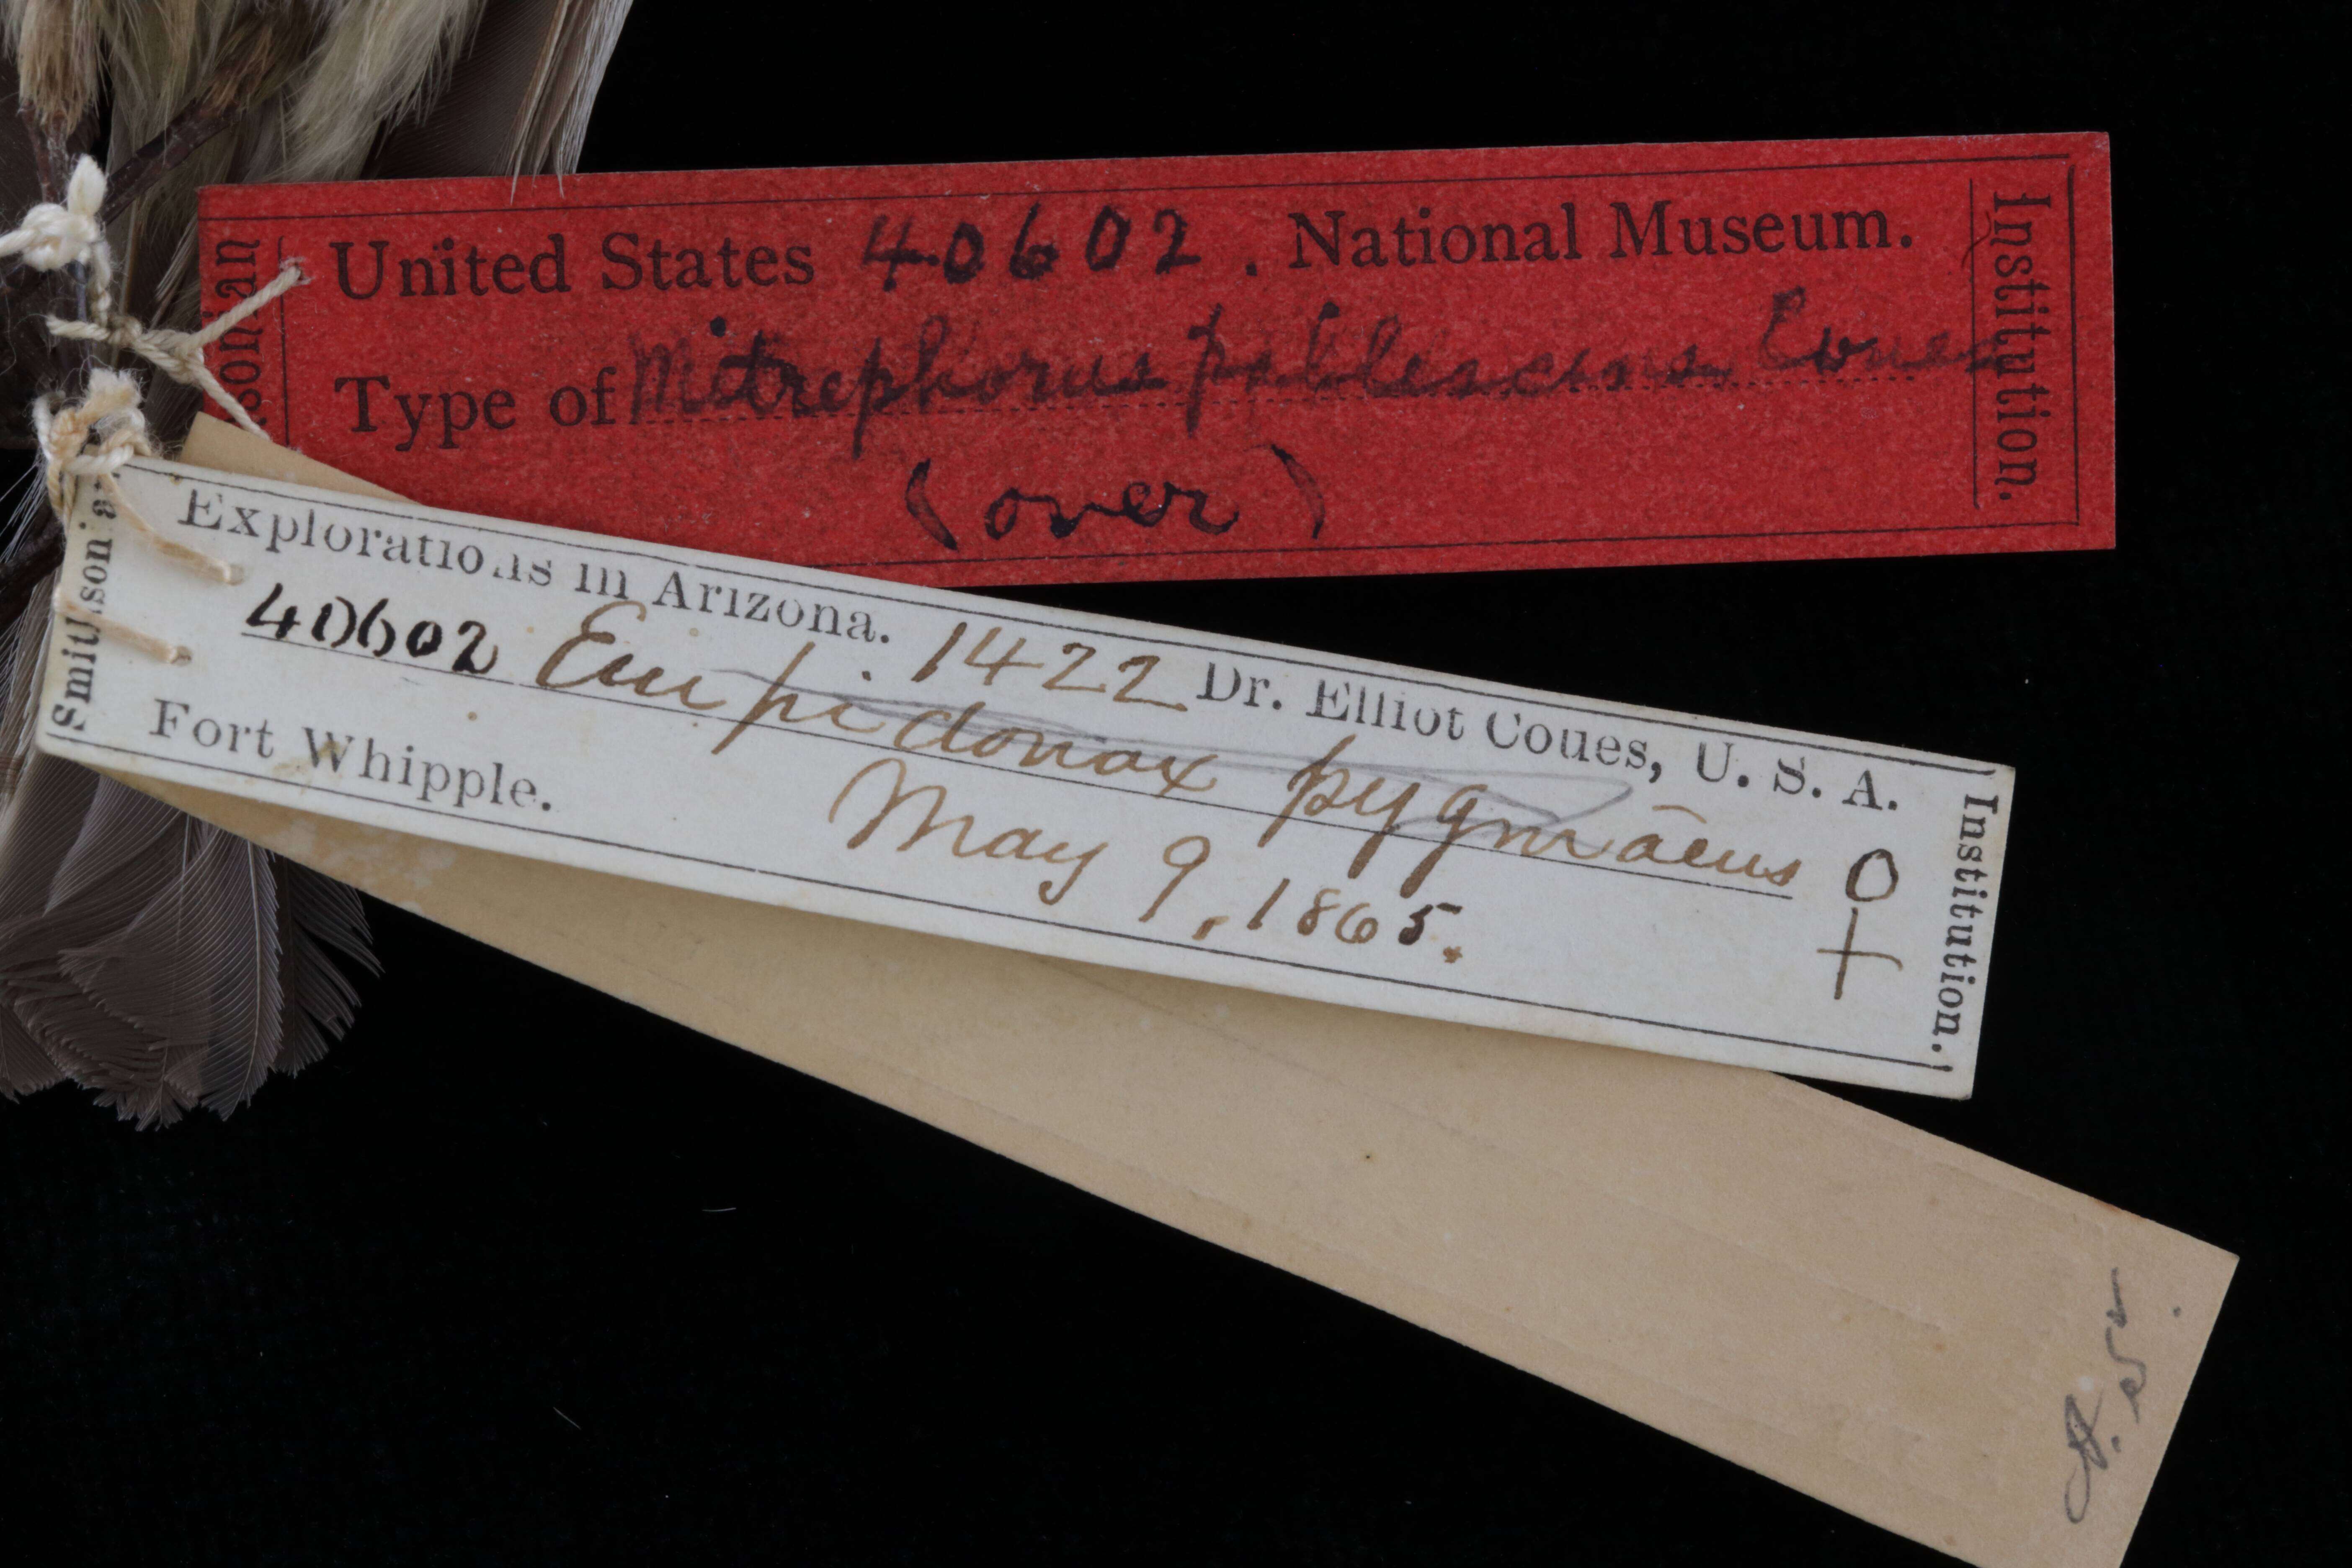 United States 40602. National Museum.
Type of Mitrephorus pallescens Coues
(over)
Institution.
Smithsonian
Explorations in Arizona. 1422 Dr. Elliot Coues, U. S. A.
40602 Empidonax pygmāeus ♀
Fort Whipple. May 9, 1865.
Institution.